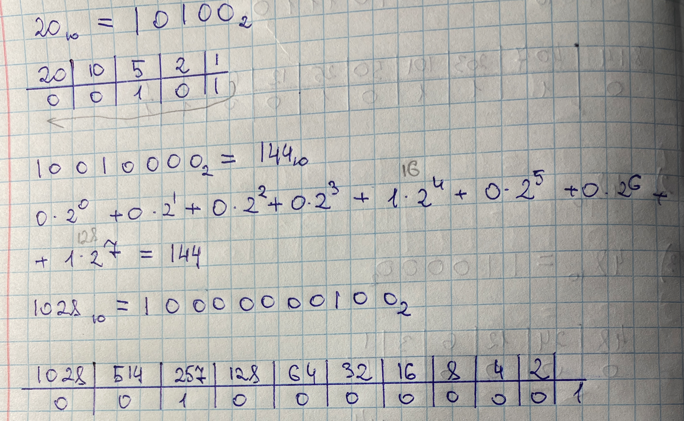 20₁₀ = 10100₂
20 | 10 | 5 | 2 | 1
0 | 0 | 1 | 0 | 1
10010000₂ = 144₁₀
16
0·2⁰ + 0·2¹ + 0·2² + 0·2³ + 1·2⁴ + 0·2⁵ + 0·2⁶ +
128
+ 1·2⁷ = 144
1028₁₀ = 10000000100₂
1028 | 514 | 257 | 128 | 64 | 32 | 16 | 8 | 4 | 2 |
0 | 0 | 1 | 0 | 0 | 0 | 0 | 0 | 0 | 0 | 1